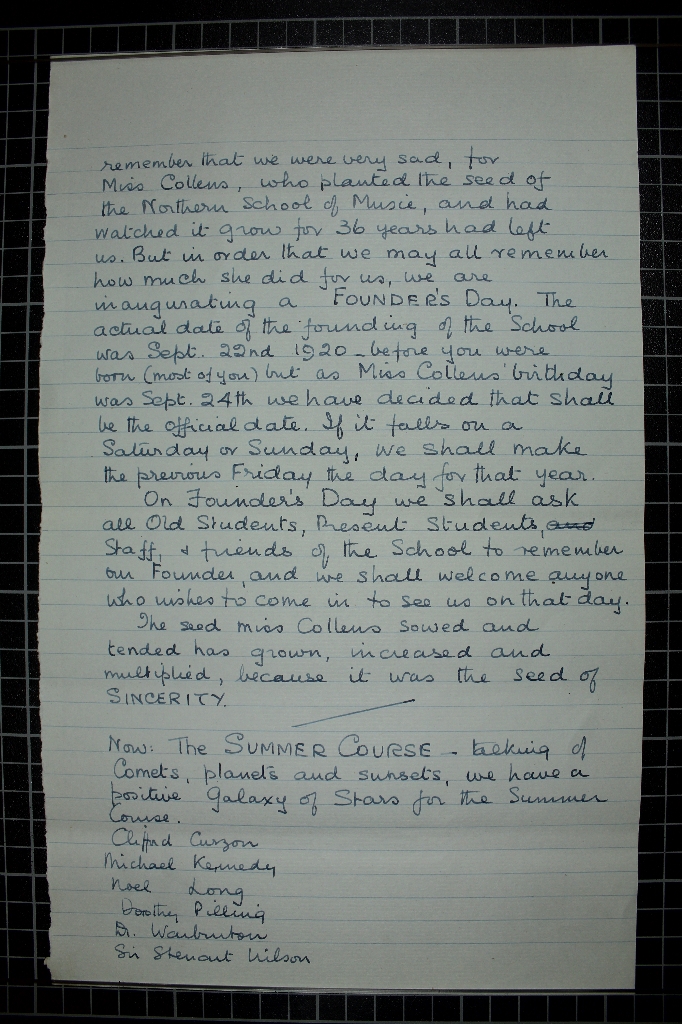 remember that we were very sad, for
Miss Collens, who planted the seed of
the Northern School of Music, and had
watched it grow for 36 years had left
us. But in order that we may all remember
how much she did for us, we are
inaugurating a FOUNDER'S Day. The
actual date of the founding of the School
was Sept. 22nd 1920 - before you were
born (most of you) but as Miss Collens' birthday
was Sept. 24th we have decided that shall
be the official date. If it falls on a
Saturday or Sunday, we shall make
the previous Friday the day for that year.
On Founder's Day we shall ask
all Old Students, Present Students, and
Staff, & friends of the School to remember
our Founder, and we shall welcome anyone
who wishes to come in to see us on that day.
The seed miss Collens sowed and
tended has grown, increased and
multiplied, because it was the seed of
SINCERITY.
Now: The SUMMER COURSE - talking of
Comets, planets and sunsets, we have a
positive Galaxy of Stars for the Summer
Course.
Clifford Curzon
Michael Kennedy
Noel Long
Dorothy Pilling
Dr. Warburton
Sir Steuart Wilson